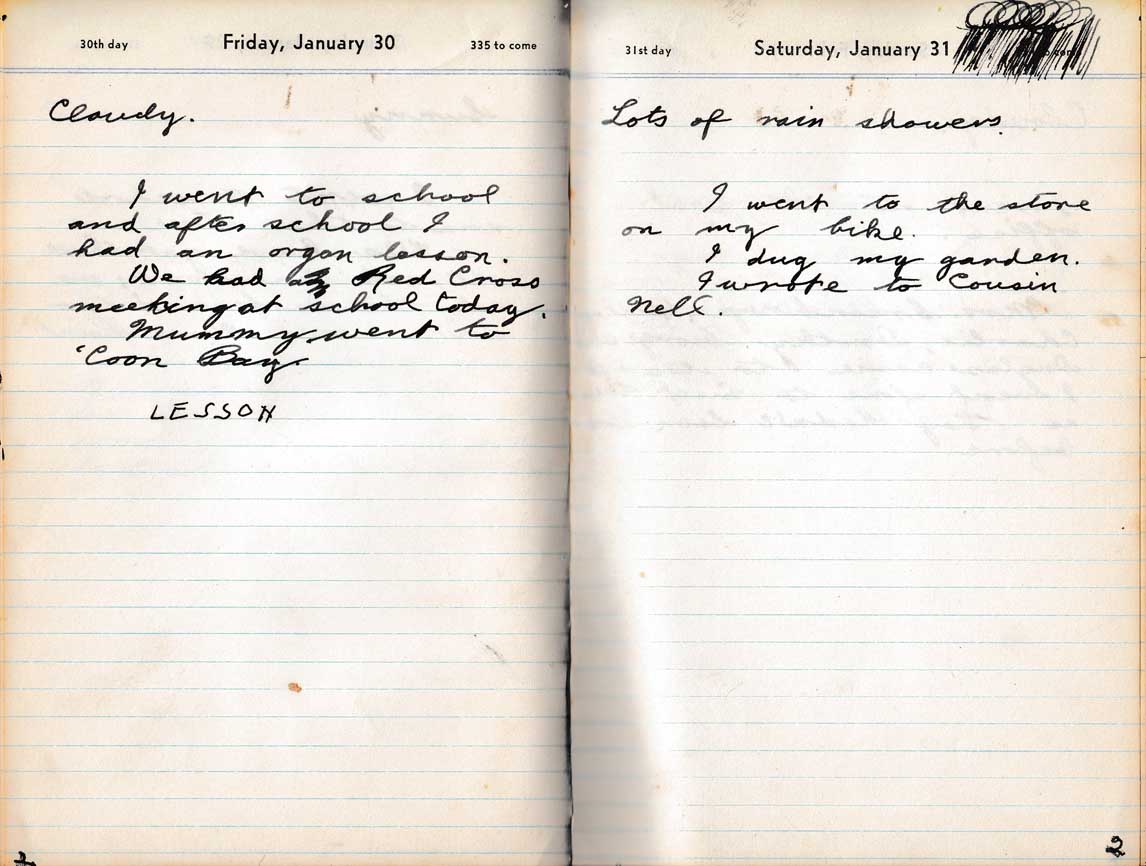 30th day Friday, January 30 335 to come
Cloudy.
I went to school
and after school I
had an organ lesson.
We had a Red Cross
meeking at school today.
Mummy went to
'Coon Bay.
LESSON
31st day Saturday, January 31
Lots of rain showers.
I went to the store
on my bike.
I dug my garden.
I wrote to Cousin
Nell.
2